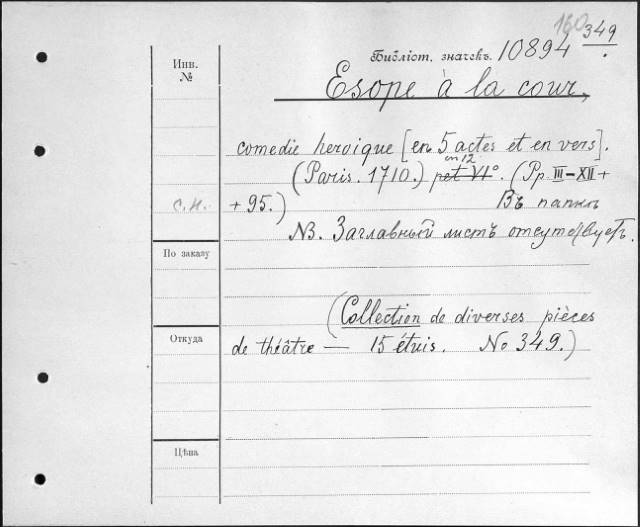 160
349
Инв.
№
Библіот. значекъ. 10894
Esope à la cour,
comedie heroique [en 5 actes et en vers].
in 12
(Paris. 1710.) pet VIº. (Pp. III-XII+
с.н.
+ 95.) Въ папкѣ
NB. Заглавный листъ отсутствуетъ.
По заказу
(Collection de diverses pièces
Откуда
de théâtre — 15 étuis. No 349.)
Цѣна